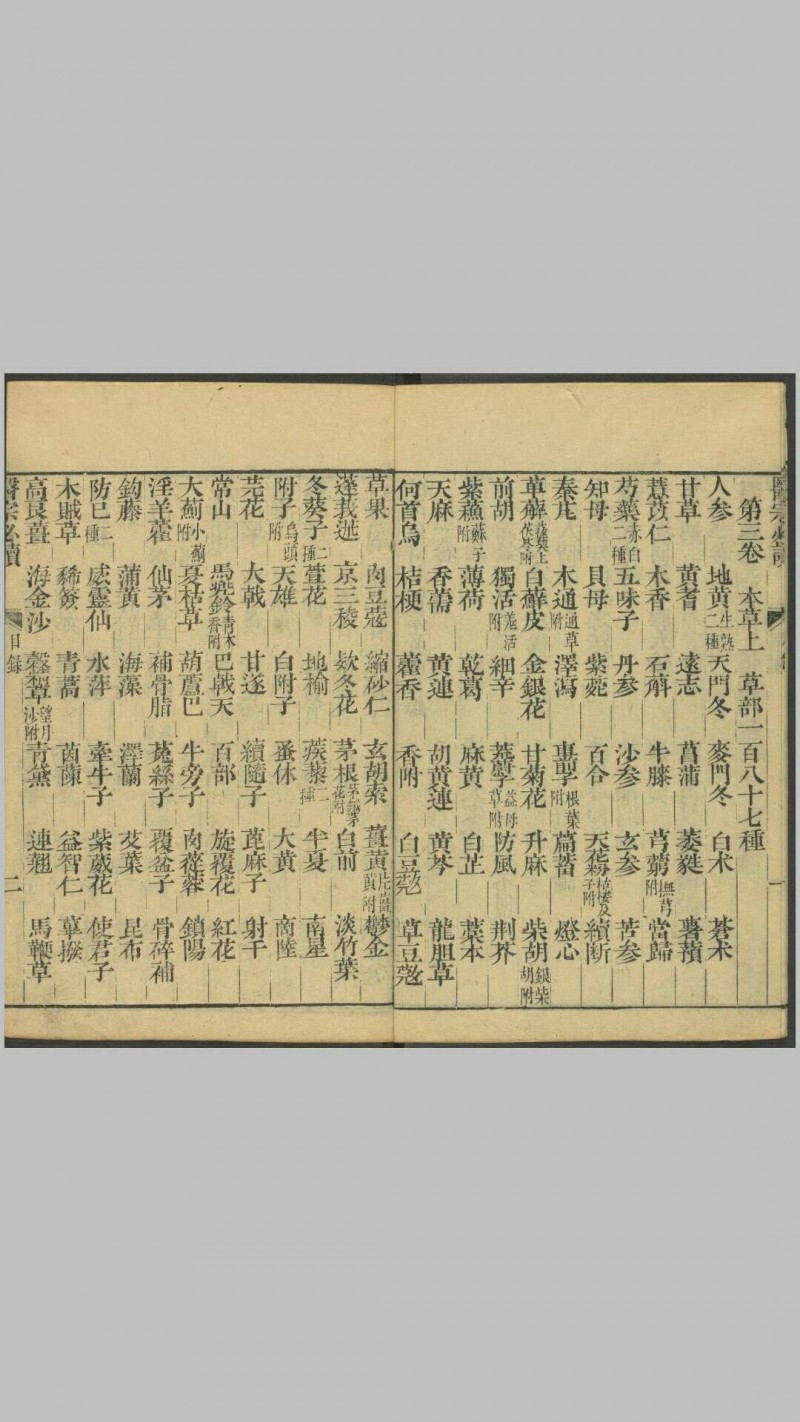 第三卷 本草上 草部一百八十七種
人参 地黃生熟二種 天門冬 麥門冬 白朮 蒼朮
甘草 黃耆 遠志 菖蒲 萎蕤 薯蕷
薏苡仁 木香 石斛 牛膝 芎藭撫芎附 當歸
芍藥赤白二種 五味子 丹参 沙参 玄参 苦参
知母 貝母 紫菀 百合 天花粉括樓及子附 續断
秦艽 木通通草附 澤瀉 車前子根葉附 萹蓄 燈心
萆薢菝葜土茯苓附 白蘚皮 金銀花 甘菊花 升麻 柴胡銀柴胡附
前胡 獨活羗活附 細辛 茺蔚子益母草附 防風 荆芥
紫蘇蘇子附 薄荷 乾葛 麻黃 白芷 藁本
天麻 香薷 黃連 胡黃連 黃芩 龍胆草
何首烏 桔梗 藿香 香附 白豆蔻 草豆蔻
草果 肉豆蔻 縮砂仁 玄胡索 薑黃片薑黃附 鬱金
蓬莪朮 京三稜 欵冬花 茅根茅針茅花附 白前 淡竹葉
冬葵子二種 萱花 地榆 蒺藜二種 半夏 南星
附子烏頭附 天雄 白附子 蚤休 大黃 商陸
芫花 大戟 甘遂 續隨子 蓖麻子 射干
常山 馬兜鈴青木香附 巴戟天 百部 旋覆花 紅花
大薊小薊附 夏枯草 葫蘆巴 牛旁子 肉蓯蓉 鎖陽
淫羊藿 仙茅 補骨脂 菟絲子 覆盆子 骨碎補
鈎藤 蒲黃 海藻 澤蘭 艾葉 昆布
防巳二種 威靈仙 水萍 牽牛子 紫葳花 使君子
木賊草 豨薟 青蒿 茵蔯 益智仁 蓽撥
高良薑 海金沙 穀精草望月沙附 青黛 連翹 馬鞭草
醫宗必讀 目錄 二